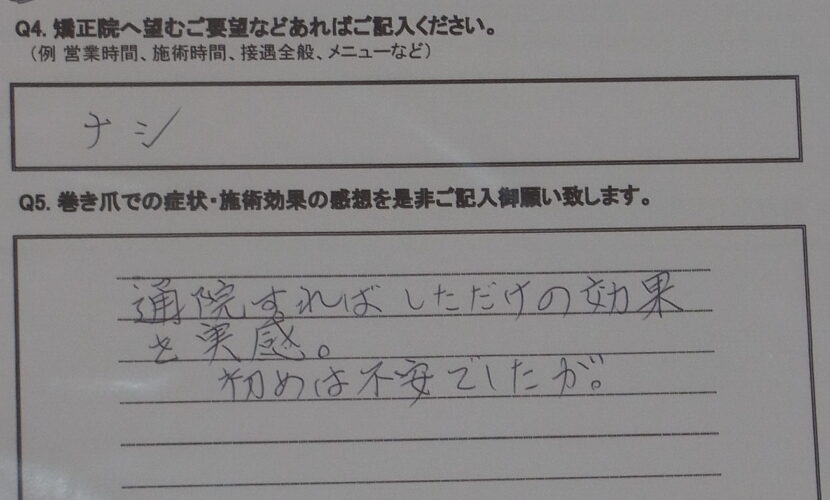 Q4. 矯正院へ望むご要望などあればご記入ください。
（例 営業時間、施術時間、接遇全般、メニューなど）
ナシ
Q5. 巻き爪での症状・施術効果の感想を是非ご記入御願い致します。
通院すればしただけの効果
を実感。
初めは不安でしたが。